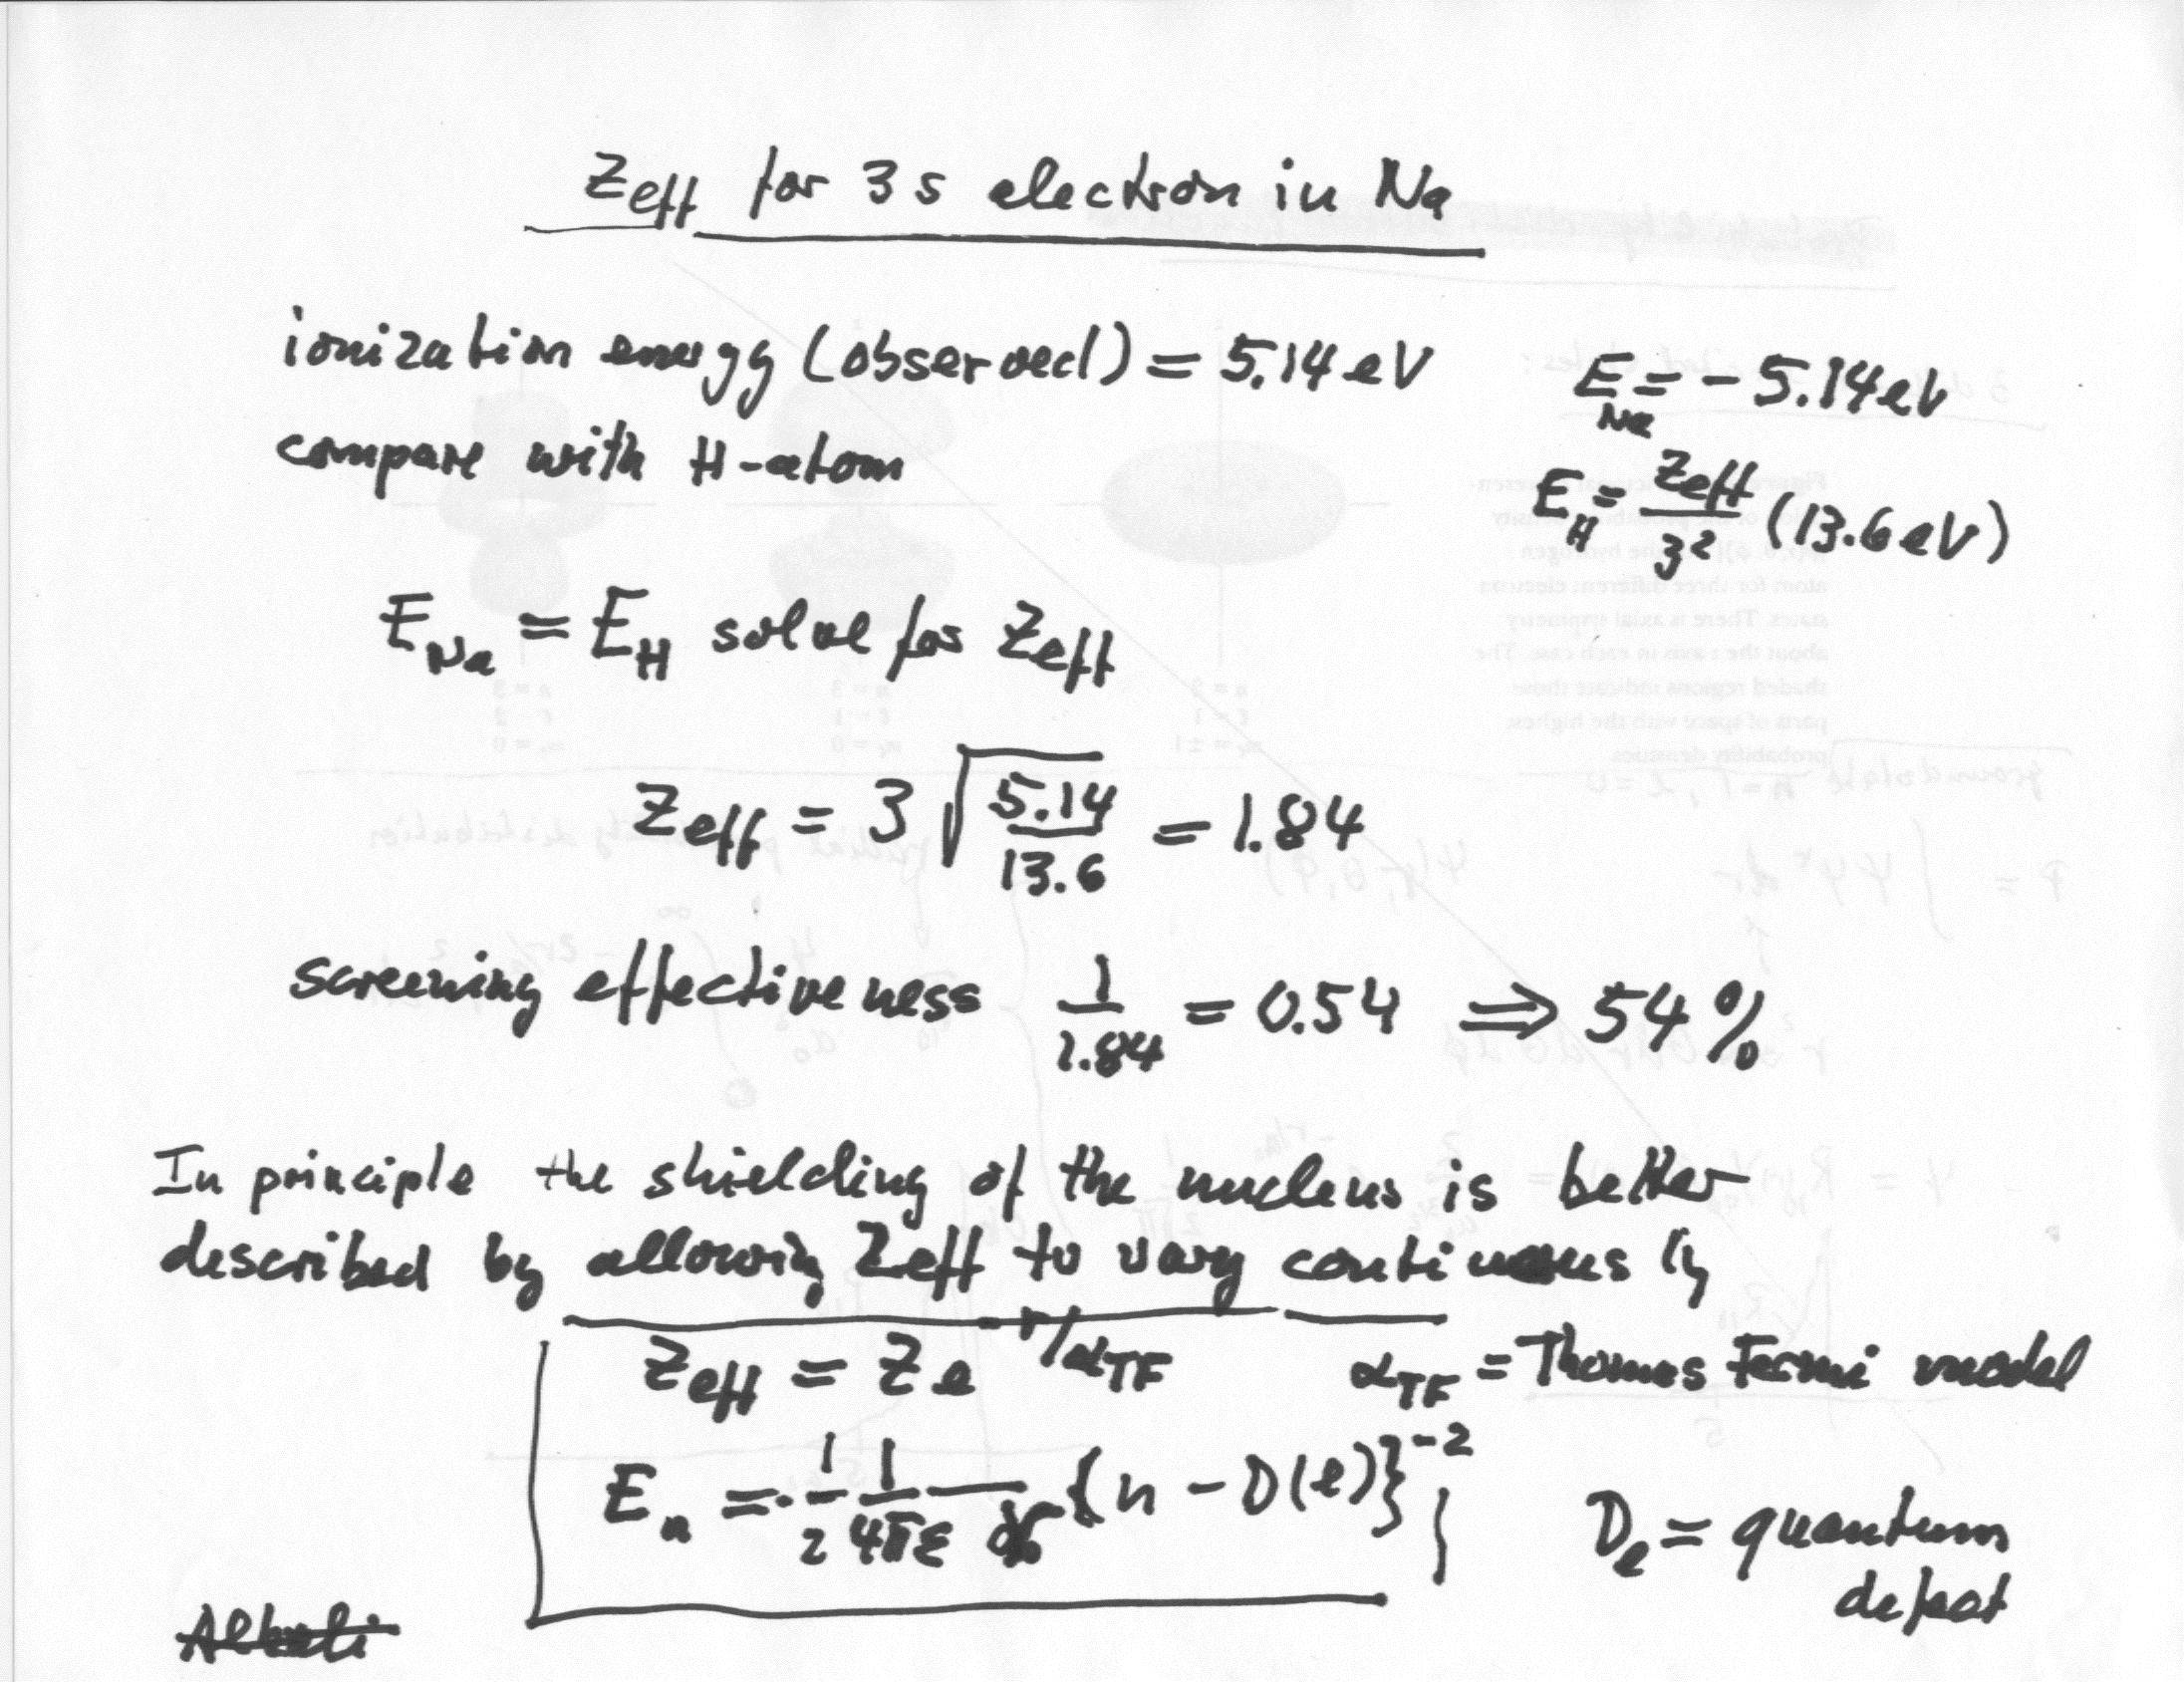 Zeff for 3s electron in Na
ionization energy (observed) = 5.14 eV
E_Na = - 5.14 eV
compare with H-atom
E_H = Zeff / 3² (13.6 eV)
E_Na = E_H solve for Zeff
Zeff = 3 √(5.14 / 13.6) = 1.84
screening effectiveness 1 / 1.84 = 0.54 ⇒ 54 %
In principle the shielding of the nucleus is better
described by allowing Zeff to vary continuously
Zeff = Z e^(-r/α_TF) α_TF = Thomas Fermi model
E_n = - 1/2 1/4πε {n - D(ℓ)}^-2
D_ℓ = quantum
defect
Alkali